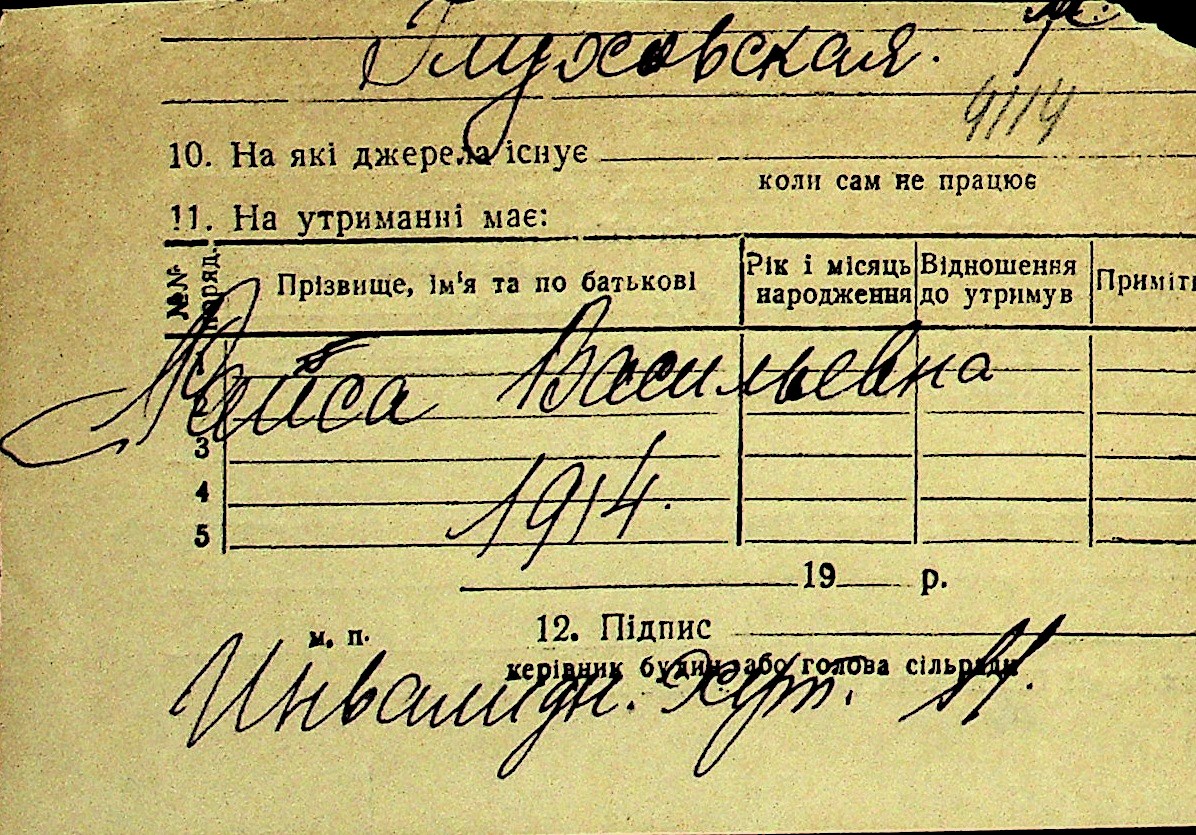 Глуховская.
4114
10. На які джерела існує
коли сам не працює
11. На утриманні має:
№№ поряд. Прізвище, ім'я та по батькові Рік і місяць народження Відношення до утримув Приміт
1
Раиса Васильевна
2
3
4
1914.
5
19 р.
м. п. 12. Підпис
керівник будин. або голова сільради
Инвалидн. Хут.